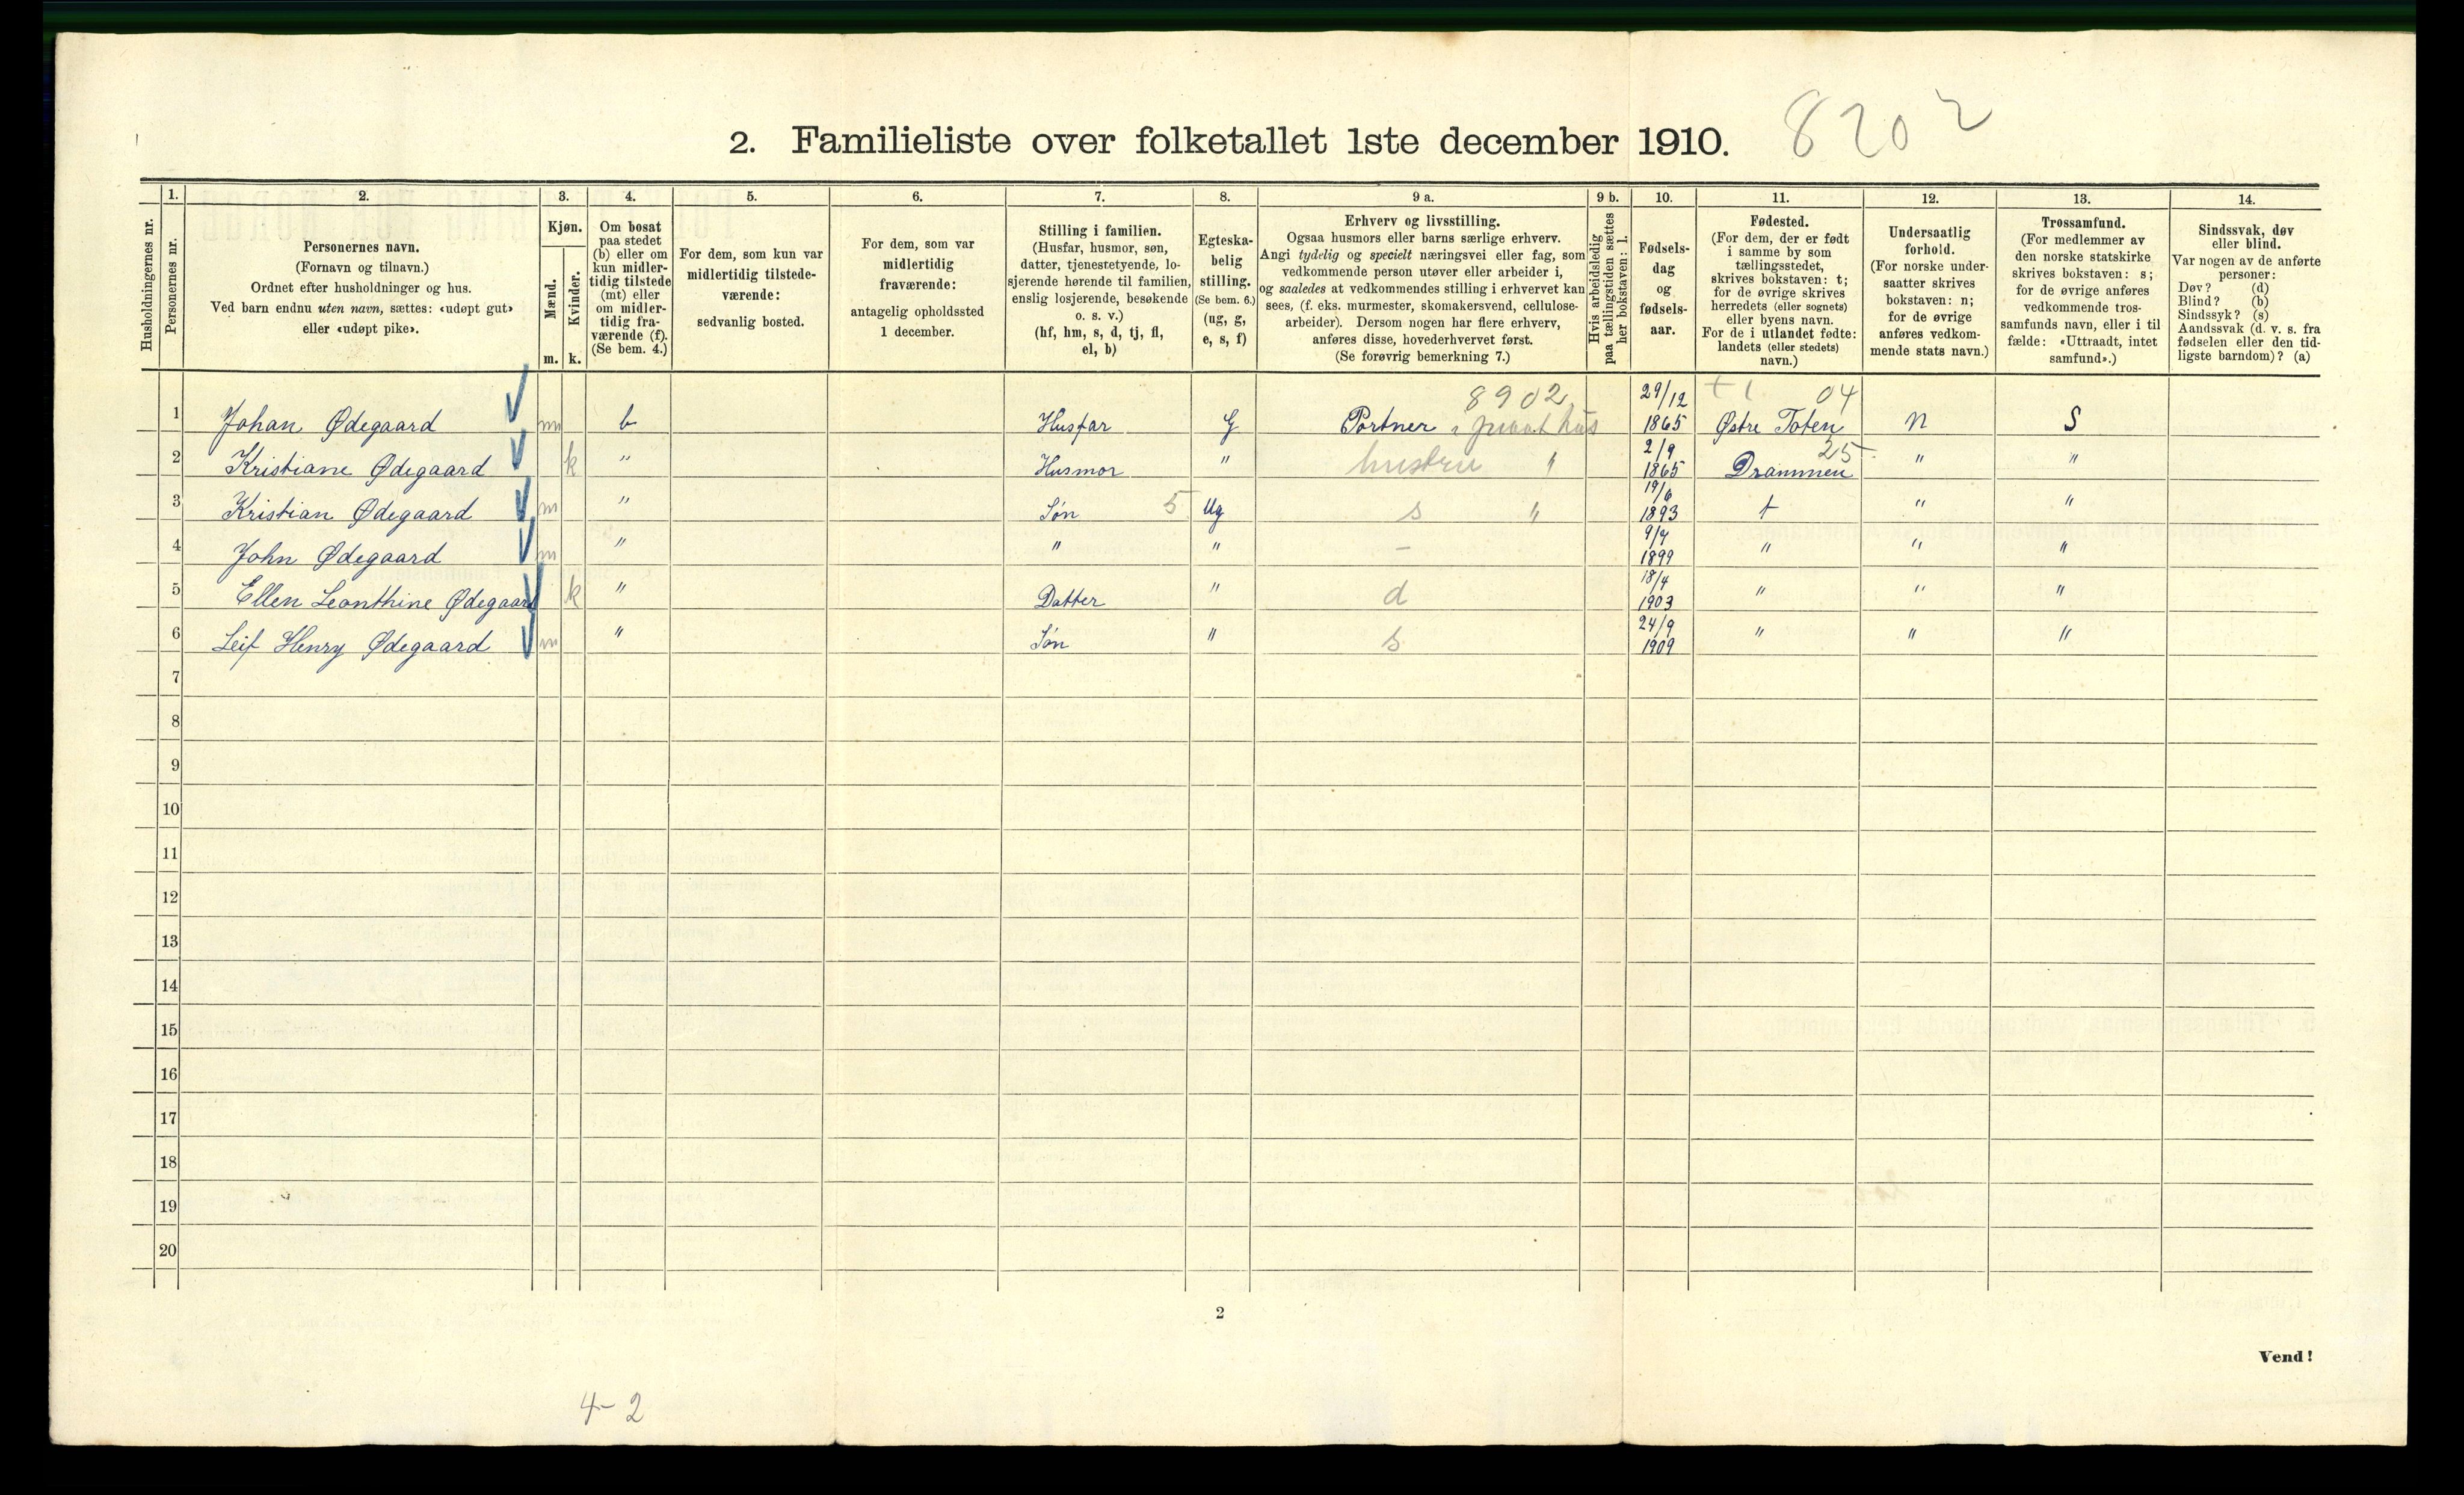 8202
2. Familieliste over folketallet 1ste december 1910.
1. 2. 3. 4. 5. 6. 7. 8. 9 a. 9 b. 10. 11. 12. 13. 14.
Husholdningernes nr.
Personernes nr.
Personernes navn.
(Fornavn og tilnavn.)
Ordnet efter husholdninger og hus.
Ved barn endnu uten navn, sættes: «udøpt gut»
eller «udøpt pike».
Kjøn.
Mænd.
Kvinder.
m. k.
Om bosat
paa stedet
(b) eller om
kun midler-
tidig tilstede
(mt) eller
om midler-
tidig fra-
værende (f).
(Se bem. 4.)
For dem, som kun var
midlertidig tilstede-
værende:
sedvanlig bosted.
For dem, som var
midlertidig
fraværende:
antagelig opholdssted
1 december.
Stilling i familien.
(Husfar, husmor, søn,
datter, tjenestetyende, lo-
sjerende hørende til familien,
enslig losjerende, besøkende
o. s. v.)
(hf, hm, s, d, tj, fl,
el, b)
Egteska-
belig
stilling.
(Se bem. 6.)
(ug, g,
e, s, f)
Erhverv og livsstilling.
Ogsaa husmors eller barns særlige erhverv.
Angi tydelig og specielt næringsvei eller fag, som
vedkommende person utøver eller arbeider i,
og saaledes at vedkommendes stilling i erhvervet kan
sees, (f. eks. murmester, skomakersvend, cellulose-
arbeider). Dersom nogen har flere erhverv,
anføres disse, hovederhvervet først.
(Se forøvrig bemerkning 7.)
Hvis arbeidsledig
paa tællingstiden sættes
her bokstaven: l.
Fødsels-
dag
og
fødsels-
aar.
Fødested.
(For dem, der er født
i samme by som
tællingsstedet,
skrives bokstaven: t;
for de øvrige skrives
herredets (eller sognets)
eller byens navn.
For de i utlandet fødte:
landets (eller stedets)
navn.)
Undersaatlig
forhold.
(For norske under-
saatter skrives
bokstaven: n;
for de øvrige
anføres vedkom-
mende stats navn.)
Trossamfund.
(For medlemmer av
den norske statskirke
skrives bokstaven: s;
for de øvrige anføres
vedkommende tros-
samfunds navn, eller i til
fælde: «Uttraadt, intet
samfund».)
Sindssvak, døv
eller blind.
Var nogen av de anførte
personer:
Døv? (d)
Blind? (b)
Sindssyk? (s)
Aandssvak (d. v. s. fra
fødselen eller den tid-
ligste barndom)? (a)
8902 29/12 04
1 Johan Ødegaard m b Husfar G Portner i privat hus 1865 Østre Toten n S
2/9 25
2 Kristiane Ødegaard k " Husmor " hustru " 1865 Drammen " "
19/6
3 Kristian Ødegaard m " Søn 5 Ug s " 1893 t " "
9/4
4 John Ødegaard m " " " - 1899 " " "
18/4
5 Ellen Leonthine Ødegaard k " Datter " d 1903 " " "
24/9
6 Leif Henry Ødegaard m " Søn " s 1909 " " "
7
8
9
10
11
12
13
14
15
16
17
18
19
20
2
Vend!
4-2